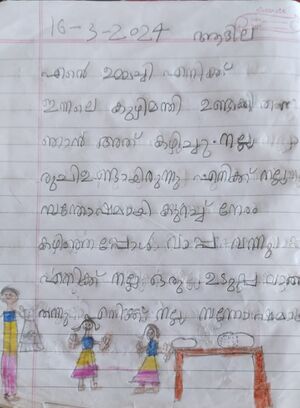 16-3-2024 ആദില
എന്റെ ഉമ്മച്ചി എനിക്ക്
ഇന്നലെ കുഴിമന്തി ഉണ്ടാക്കി തന്നു
ഞാൻ അത് കഴിച്ചു. നല്ല
രുചിഉണ്ടായിരുന്നു എനിക്ക് നല്ല
സന്തോഷമായി കുറച്ച് നേരം
കഴിഞ്ഞപ്പോൾ വാപ്പ വന്നു
എനിക്ക് നല്ല ഒരു ഉടുപ്പ്
തന്നു എനിക്ക് നല്ല സന്തോഷമായി